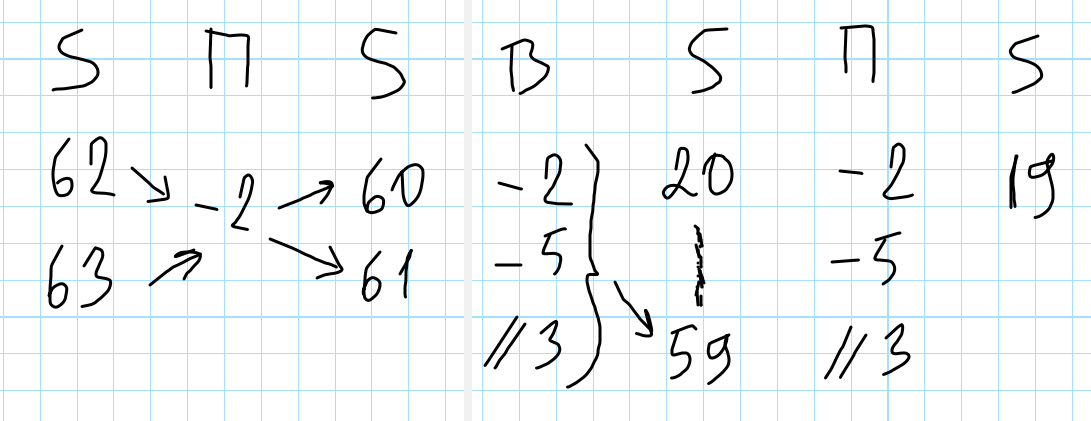 S П S В S П S
62 -2 60 -2 20 -2 19
63 61 -5 -5
//3 59 //3